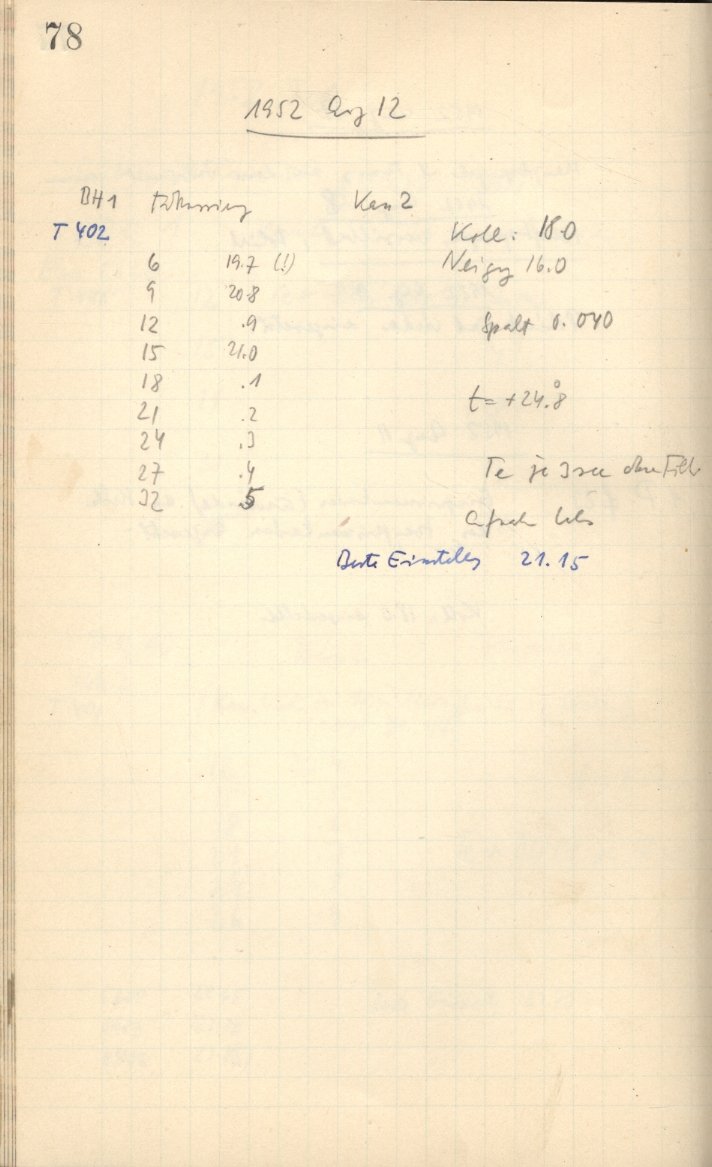 78
1952 Aug 12
BH1 Fokussierung Kam 2
T 402
Koll: 18.0
6 19.7 (!)
Neigg 16.0
9 20.8
12 .9
Spalt 0.040
15 21.0
18 .1
t = +24.°8
21 .2
24 .3
27 .4
Te je 3 sec ohne Filt
32 5
Beste Einstellg 21.15